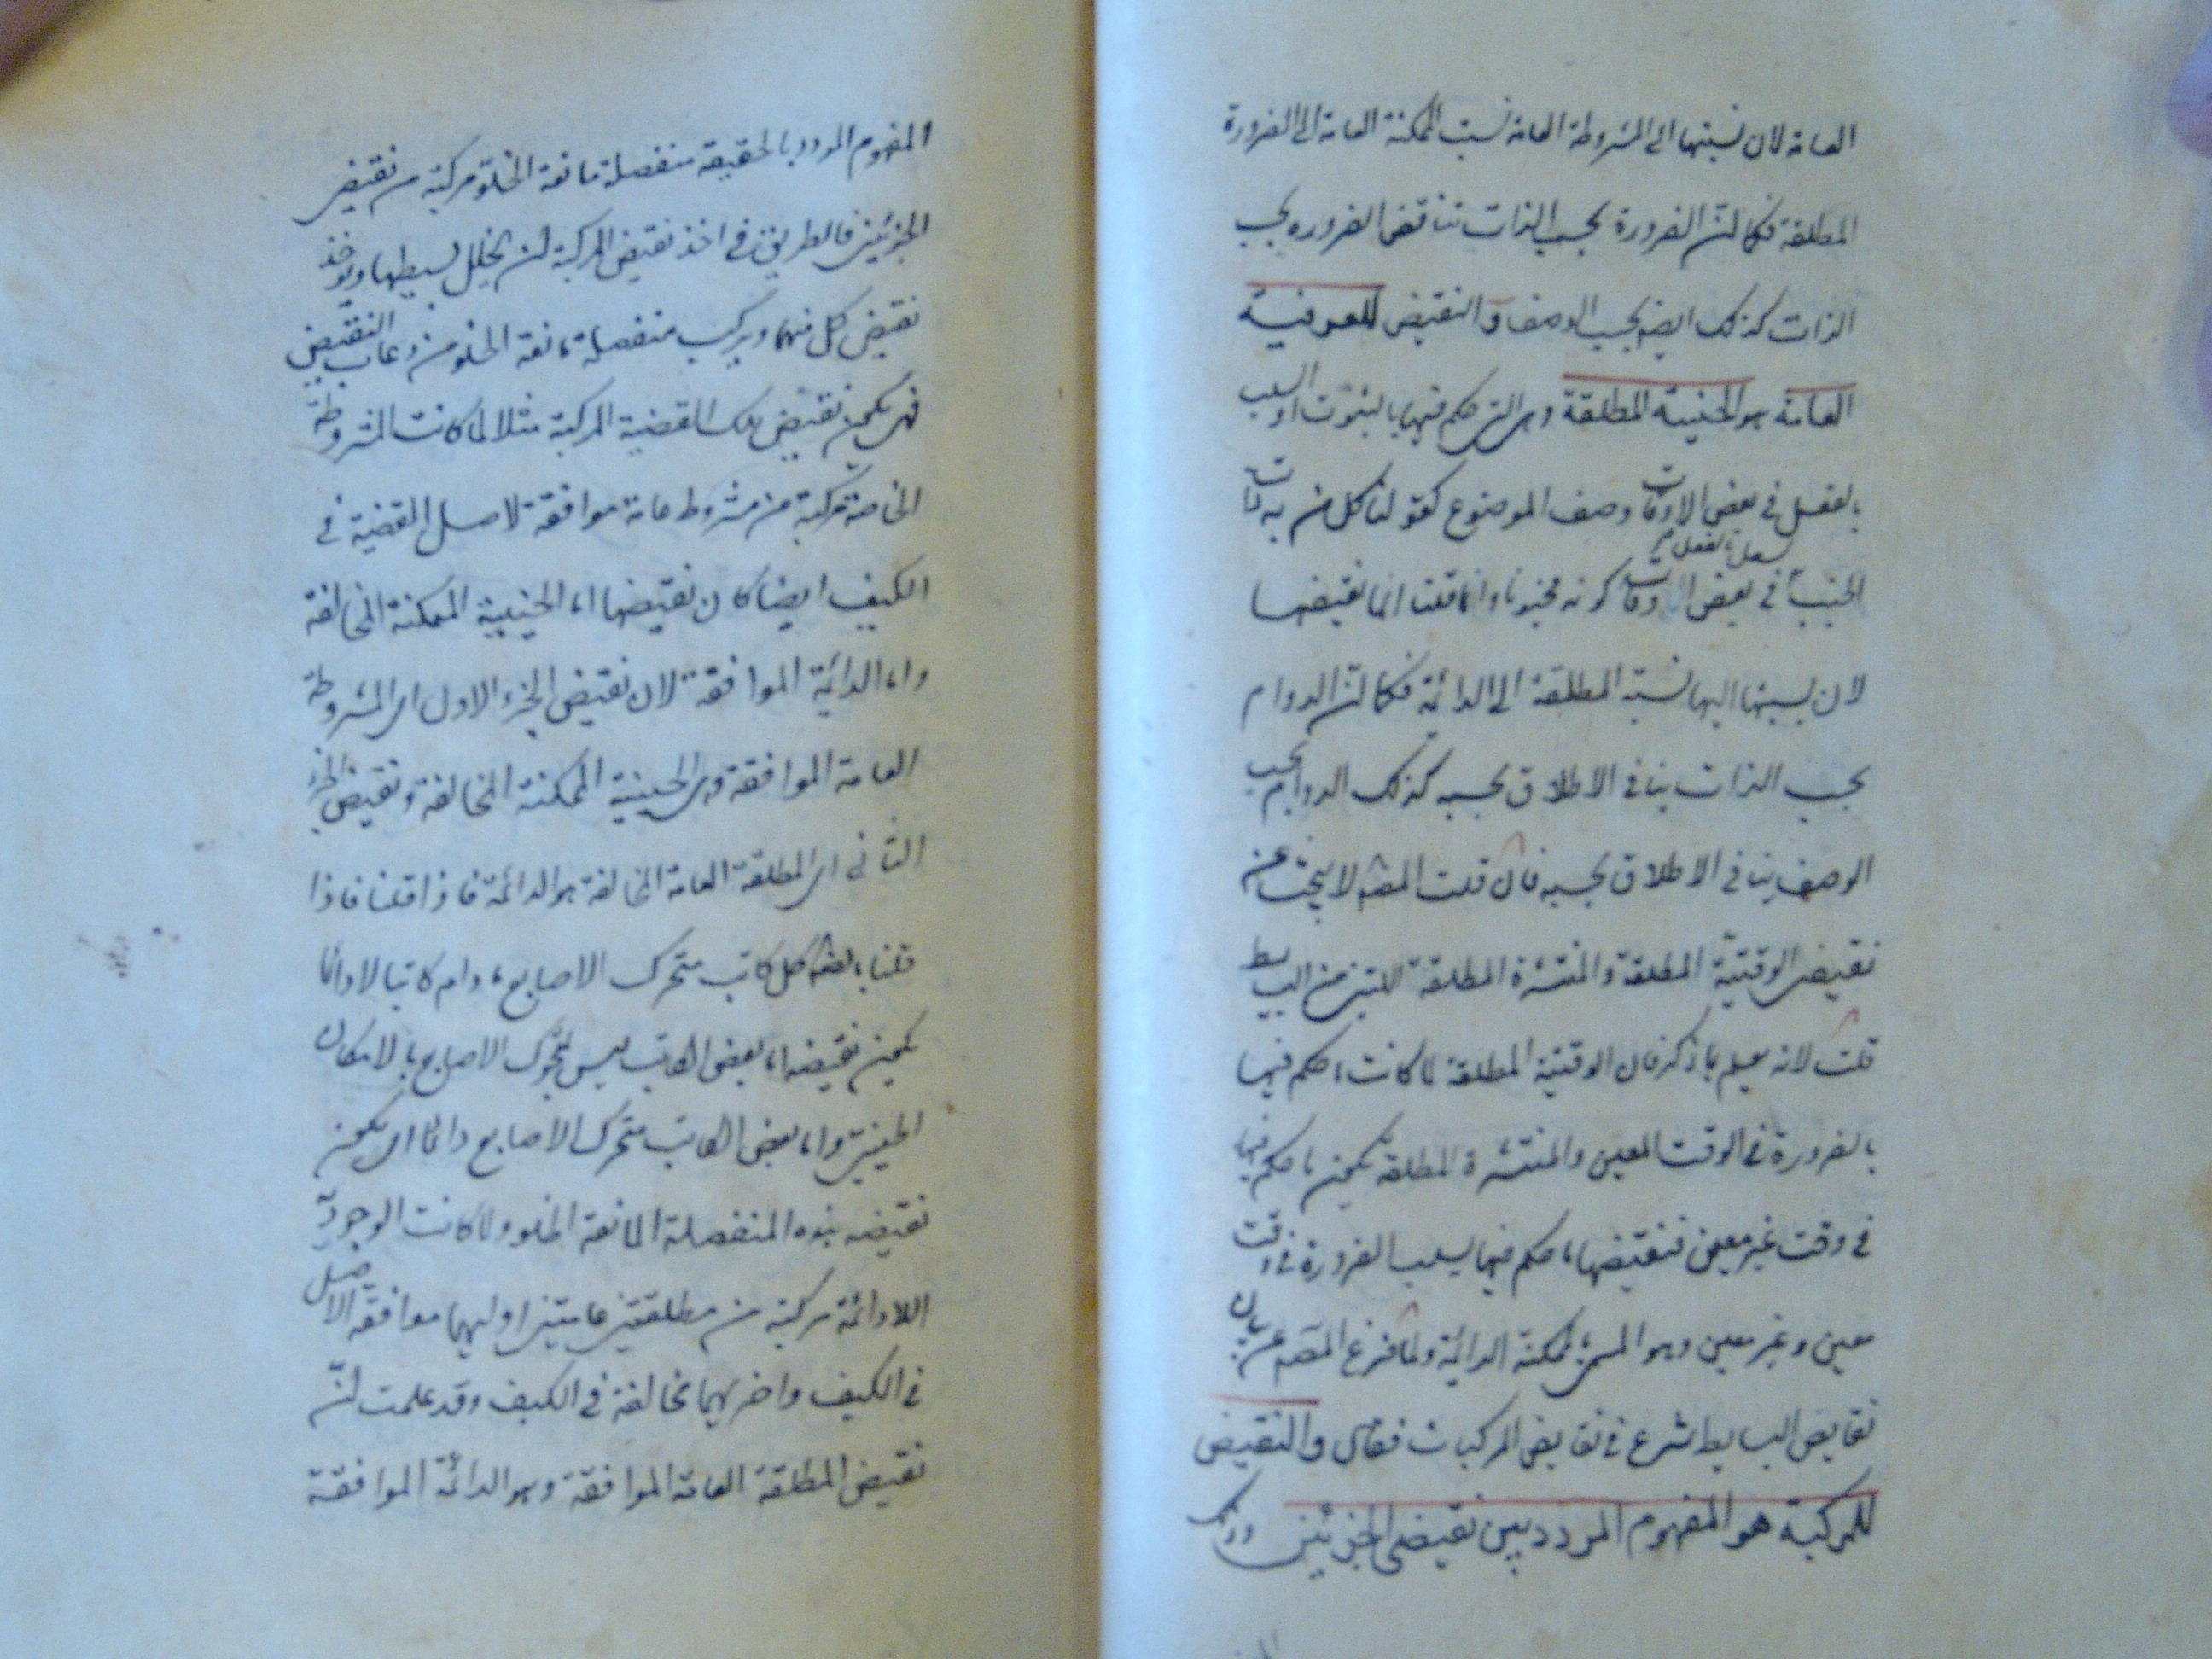 العامة لان نسبتها الى المشروطة العامة نسبت الممكنة العامة الى الضرورة
المطلقة فكما انّ الضرورة بحسب الذات تناقض الضروره بحسب
الذات كذلك ايضا بحسب الوصف و النقيض للعرفية
العامة هو الحينية المطلقة وهى التى حكم فيها بالثبوت او السلب
بالفعل في بعض الاوقات وصف الموضوع كقولنا كل من به ذات
الجنب في بعض اوقات كونه مجنوبا وانما قلنا انها نقيضها
يسعل بالفعل
لان نسبتها اليها نسبة المطلقة الى الدائمة فكما انّ الدوام
بحسب الذات ينافى الاطلاق بحسبه كذلك الدوام بحسب
الوصف ينافى الاطلاق بحسبه فان قلت المصه لا يبحث عن
نقيض الوقتية المطلقة والمنتشرة المطلقة اللتين من البسايط
قلت لانه يعلم بما ذكر فان الوقتية المطلقة لما كانت ما حكم فيها
بالضرورة في الوقت المعين والمنتشرة المطلقة يكون ما حكم فيها
في وقت غير معين فنقيضها ما حكم فيها بسلب الضرورة في وقت
معين و غير معين وهو المسمى بالممكنة الدائمة ولما فرغ المصه عن بيان
نقايض البسايط شرع في نقايض المركبات فقال والنقيض
للمركبة هو المفهوم المردد بين نقيضى الجزئين وذلك
المفهوم المردد بالحقيقة منفصلة مانعة الخلو مركبة من نقيض
الجزئين فالطريق في اخذ نقيض المركبة ان يحلل بسيطها ويؤخذ
نقيض كل منهما ويركب منفصلة مانعة الخلو من النقيضين
فهى يكون نقيض تلك القضية المركبة مثلا لما كانت المشروطة
الخاصة مركبة من مشروطة عامة موافقة لاصل القضية في
الكيف ايضا كان نقيضها اما الحينية الممكنة المخالفة
واما الدائمة الموافقة لان نقيض الجزء الاول اى المشروطة
العامة الموافقة هى الحينية الممكنة المخالفة ونقيض الجزء
الثانى اى المطلقة العامة المخالفة هو الدائمة فاذا قلنا فاذا
قلنا بالضرورة كل كاتب متحرك الاصابع مادام كاتبا لا دائما
يكون نقيضه اما بعض الكاتب ليس بمتحرك الاصابع بالامكان
الحينى واما بعض الكاتب متحرك الاصابع دائما اى يكون
نقيضه هذه المنفصلة المانعة الخلو ولما كانت الوجودية
اللادائمة مركبة من مطلقتين عامتين اوليهما موافقة الاصل
في الكيف واخريهما مخالفة في الكيف وقد علمت انّ
نقيض المطلقة العامة الموافقة وهو الدائمة الموافقة